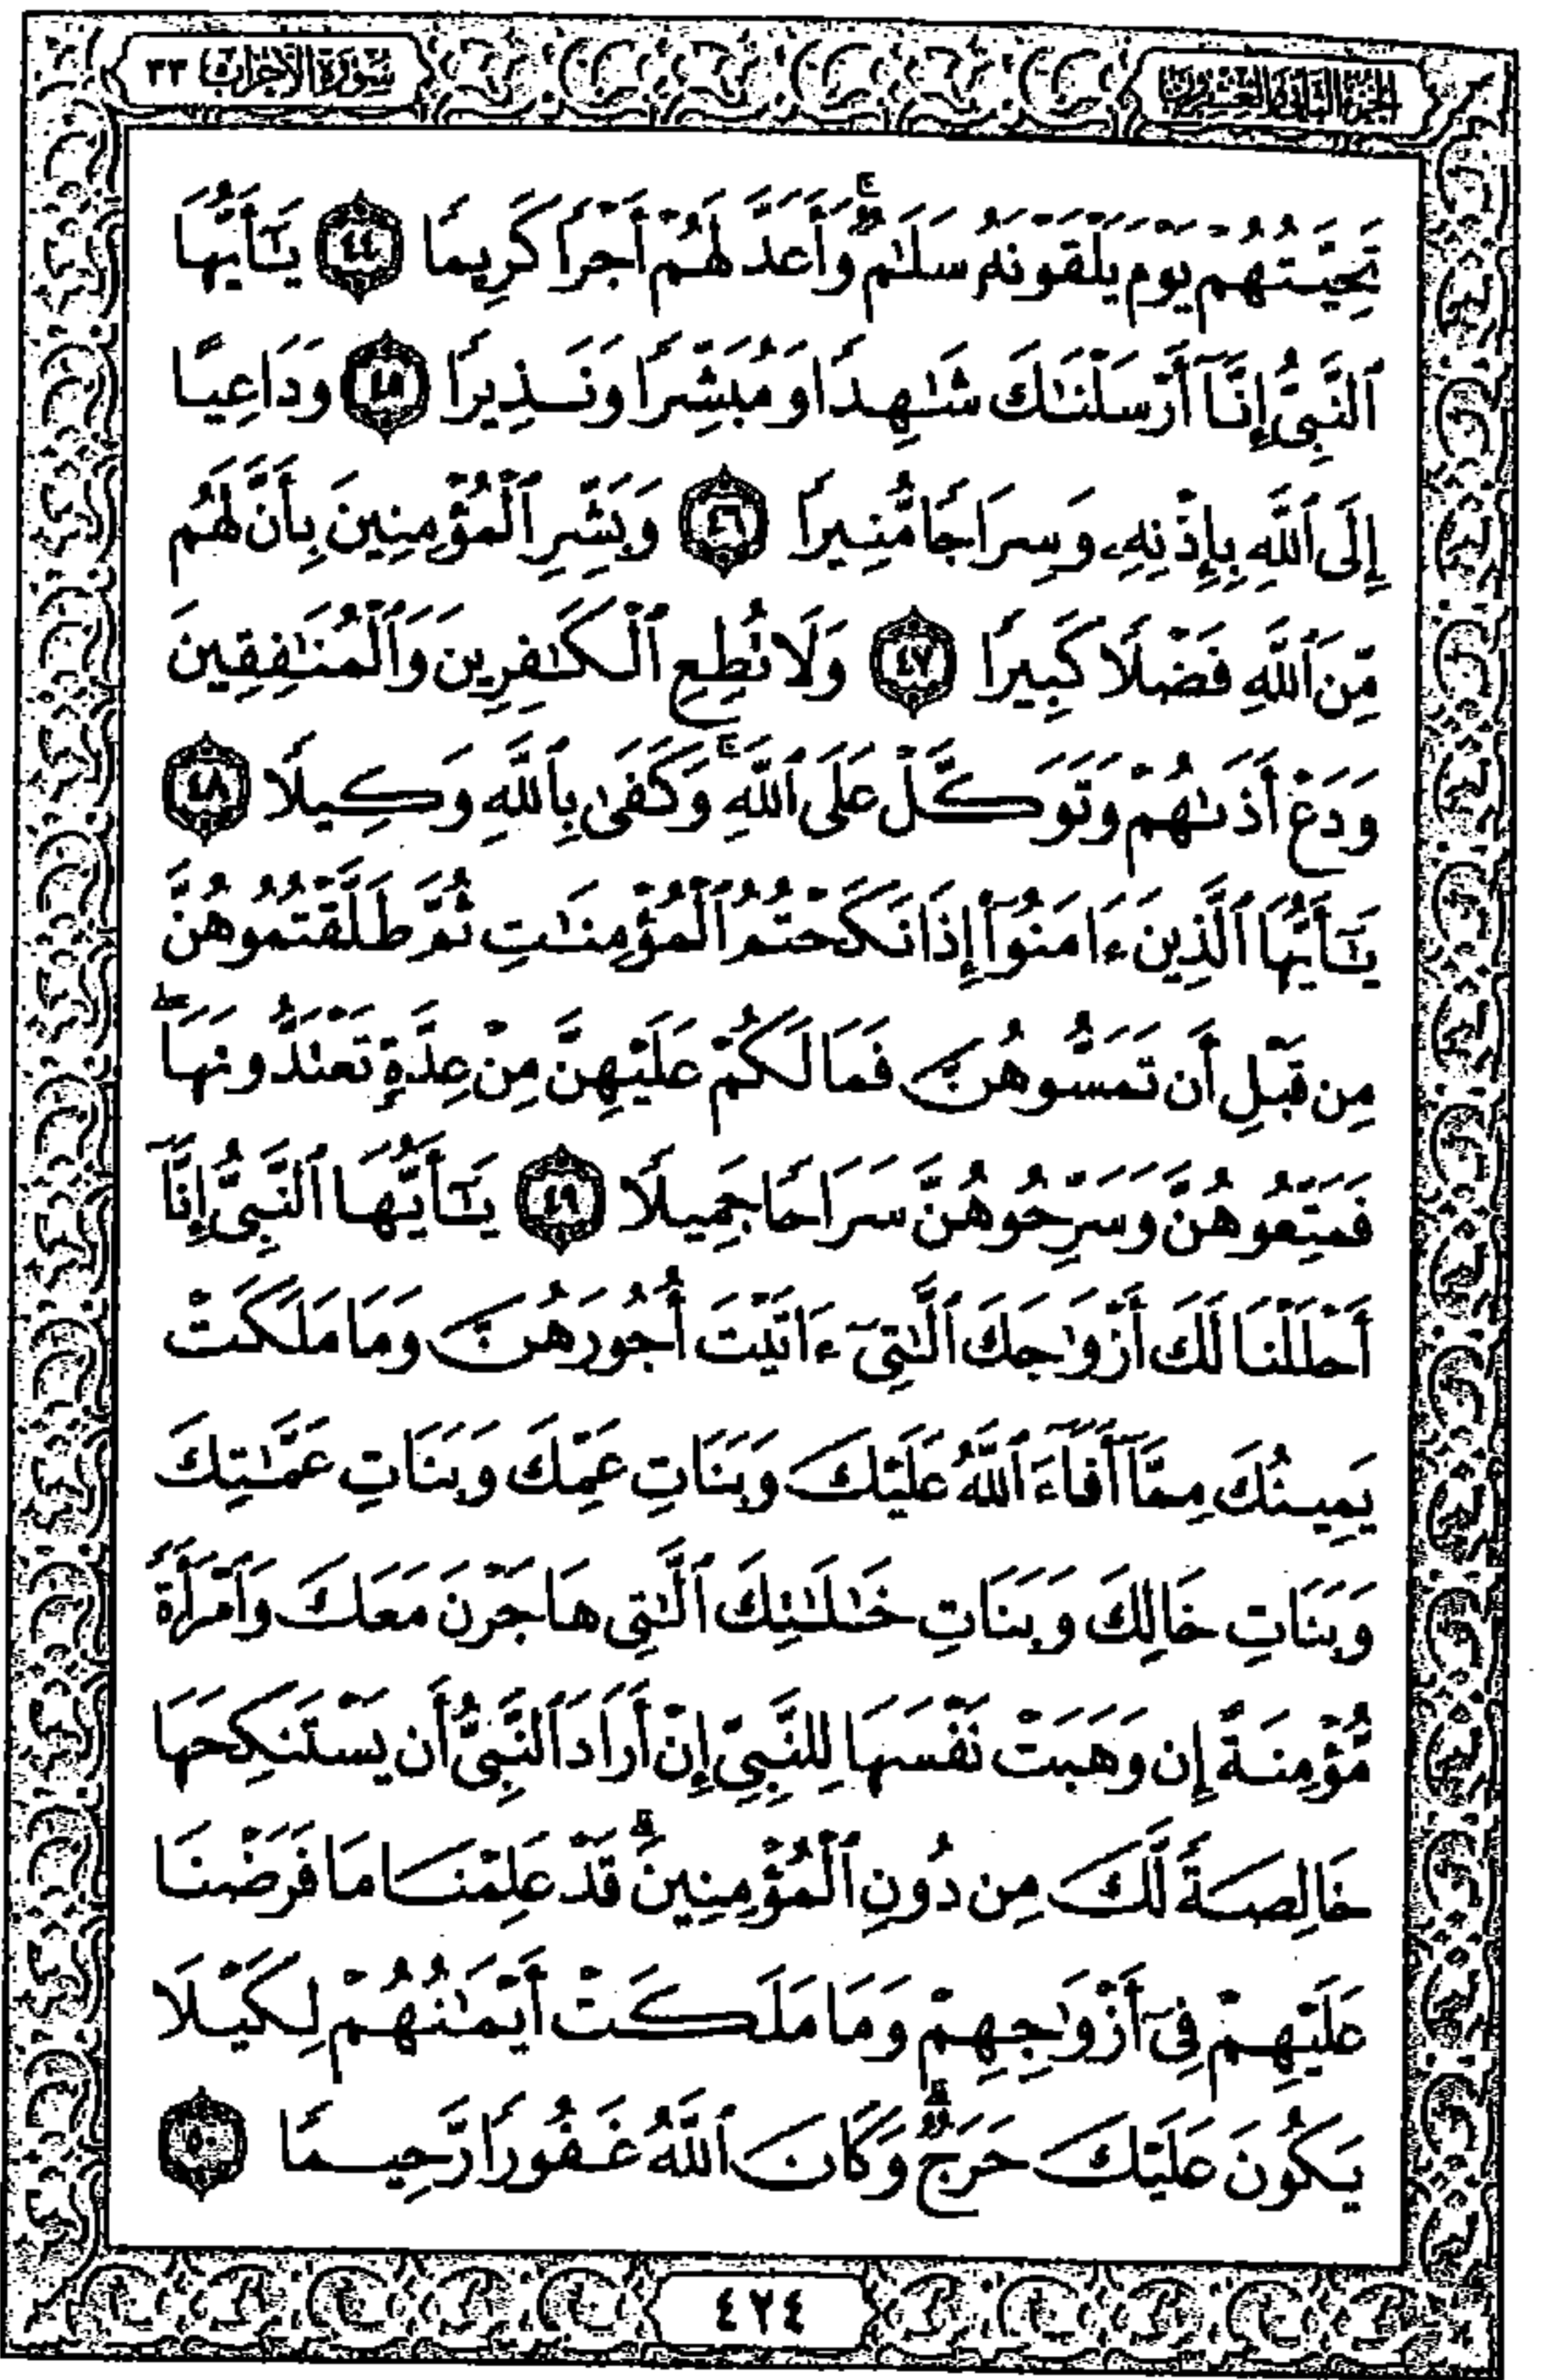 الجزء الثاني والعشرون
سورة الأحزاب ٣٣
تَحِيَّتُهُمْ يَوْمَ يَلْقَوْنَهُۥ سَلَـٰمٌ ۚ وَأَعَدَّ لَهُمْ أَجْرًا كَرِيمًا ٤٤ يَـٰٓأَيُّهَا
ٱلنَّبِىُّ إِنَّآ أَرْسَلْنَـٰكَ شَـٰهِدًا وَمُبَشِّرًا وَنَذِيرًا ٤٥ وَدَاعِيًا
إِلَى ٱللَّهِ بِإِذْنِهِۦ وَسِرَاجًا مُّنِيرًا ٤٦ وَبَشِّرِ ٱلْمُؤْمِنِينَ بِأَنَّ لَهُم
مِّنَ ٱللَّهِ فَضْلًا كَبِيرًا ٤٧ وَلَا تُطِعِ ٱلْكَـٰفِرِينَ وَٱلْمُنَـٰفِقِينَ
وَدَعْ أَذَىٰهُمْ وَتَوَكَّلْ عَلَى ٱللَّهِ ۚ وَكَفَىٰ بِٱللَّهِ وَكِيلًا ٤٨
يَـٰٓأَيُّهَا ٱلَّذِينَ ءَامَنُوٓا۟ إِذَا نَكَحْتُمُ ٱلْمُؤْمِنَـٰتِ ثُمَّ طَلَّقْتُمُوهُنَّ
مِن قَبْلِ أَن تَمَسُّوهُنَّ فَمَا لَكُمْ عَلَيْهِنَّ مِنْ عِدَّةٍ تَعْتَدُّونَهَا ۖ
فَمَتِّعُوهُنَّ وَسَرِّحُوهُنَّ سَرَاحًا جَمِيلًا ٤٩ يَـٰٓأَيُّهَا ٱلنَّبِىُّ إِنَّآ
أَحْلَلْنَا لَكَ أَزْوَٰجَكَ ٱلَّـٰتِىٓ ءَاتَيْتَ أُجُورَهُنَّ وَمَا مَلَكَتْ
يَمِينُكَ مِمَّآ أَفَآءَ ٱللَّهُ عَلَيْكَ وَبَنَاتِ عَمِّكَ وَبَنَاتِ عَمَّـٰتِكَ
وَبَنَاتِ خَالِكَ وَبَنَاتِ خَـٰلَـٰتِكَ ٱلَّـٰتِى هَاجَرْنَ مَعَكَ وَٱمْرَأَةً
مُّؤْمِنَةً إِن وَهَبَتْ نَفْسَهَا لِلنَّبِىِّ إِنْ أَرَادَ ٱلنَّبِىُّ أَن يَسْتَنكِحَهَا
خَالِصَةً لَّكَ مِن دُونِ ٱلْمُؤْمِنِينَ ۗ قَدْ عَلِمْنَا مَا فَرَضْنَا
عَلَيْهِمْ فِىٓ أَزْوَٰجِهِمْ وَمَا مَلَكَتْ أَيْمَـٰنُهُمْ لِكَيْلَا
يَكُونَ عَلَيْكَ حَرَجٌ ۗ وَكَانَ ٱللَّهُ غَفُورًا رَّحِيمًا ٥٠
٤٢٤